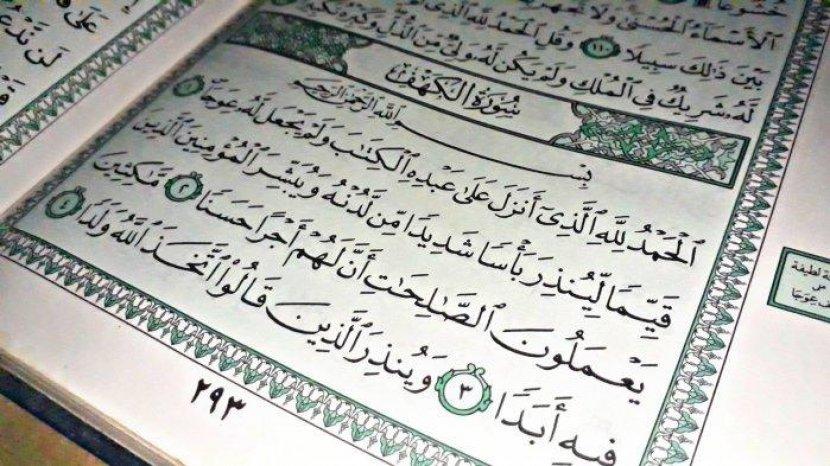 ٱلْأَسْمَآءُ ٱلْحُسْنَىٰ وَلَا تَجْهَرْ
بَيْنَ ذَٰلِكَ سَبِيلًا ١١٠ وَقُلِ ٱلْحَمْدُ لِلَّهِ ٱلَّذِى
لَّهُۥ شَرِيكٌ فِى ٱلْمُلْكِ وَلَمْ يَكُن لَّهُۥ وَلِىٌّ مِّنَ ٱلذُّلِّ وَكَبِّرْهُ تَكْبِيرًا
سُورَةُ الْكَهْفِ
بِسْمِ ٱللَّهِ ٱلرَّحْمَٰنِ ٱلرَّحِيمِ
ٱلْحَمْدُ لِلَّهِ ٱلَّذِىٓ أَنزَلَ عَلَىٰ عَبْدِهِ ٱلْكِتَٰبَ وَلَمْ يَجْعَل لَّهُۥ عِوَجَا ١
قَيِّمًا لِّيُنذِرَ بَأْسًا شَدِيدًا مِّن لَّدُنْهُ وَيُبَشِّرَ ٱلْمُؤْمِنِينَ ٱلَّذِينَ
يَعْمَلُونَ ٱلصَّٰلِحَٰتِ أَنَّ لَهُمْ أَجْرًا حَسَنًا ٢ مَّٰكِثِينَ
فِيهِ أَبَدًا ٣ وَيُنذِرَ ٱلَّذِينَ قَالُوا۟ ٱتَّخَذَ ٱللَّهُ وَلَدًا ٤
٢٩٣
لطيفة
عوجا